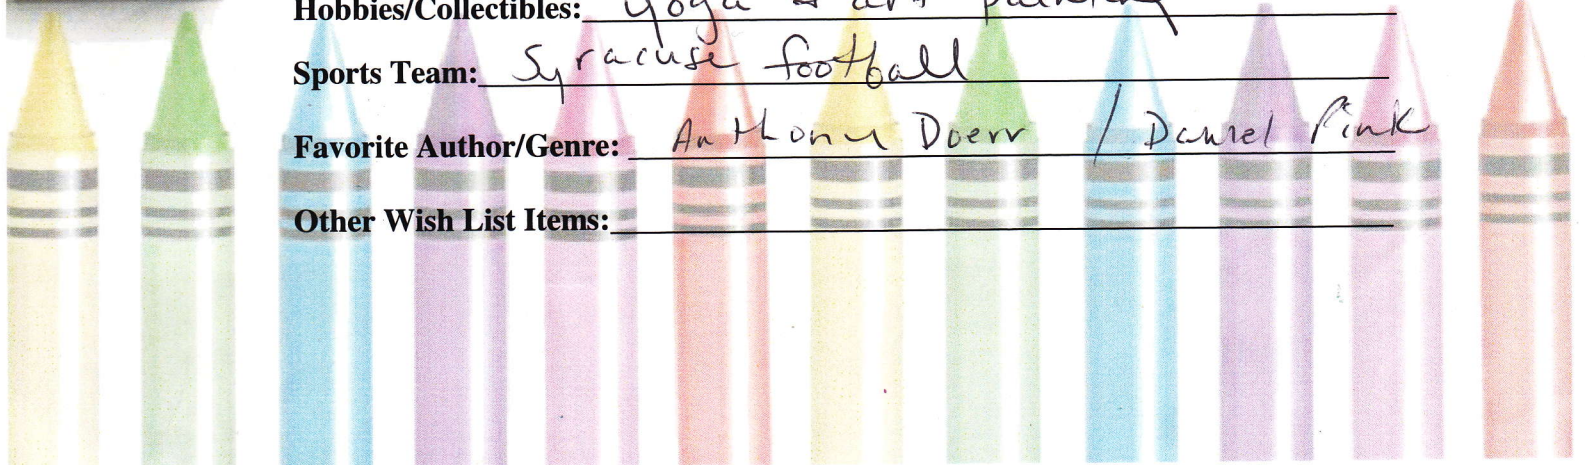 Hobbies/Collectibles: yoga & art painting
Sports Team: Syracuse football
Favorite Author/Genre: Anthony Doerr / Daniel Pink
Other Wish List Items: